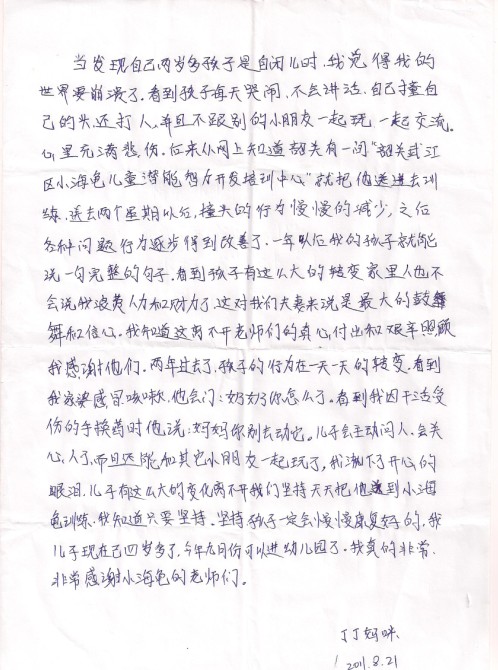 当发现自己两岁多孩子是自闭儿时,我觉得我的
世界要崩溃了.看到孩子每天哭闹.不会讲话.自己撞自
己的头.还打人,并且不跟别的小朋友一起玩.一起交流.
心里充满悲伤.后来从网上知道韶关有一间"韶关武江
区小海龟儿童潜能智力开发培训中心"就把他送进去训
练.送去两个星期以后,撞头的行为慢慢的减少,之后
各种问题行为逐步得到改善了.一年以后我的孩子就能
说一句完整的句子.看到孩子有这么大的转变家里人也不
会说我浪费人力和财力了,这对我们夫妻来说是最大的鼓
舞和信心.我知道这离不开老师们的真心付出和艰辛照顾
我感谢他们.两年过去了.孩子的行为在一天一天的转变.看到
我家婆感冒咳嗽.他会问:奶奶你怎么了.看到我因干活受
伤的手换药时他说:妈妈你别去动它.儿子会主动问人.会关
心人了,而且还能和其它小朋友一起玩了,我流下了开心的
眼泪.儿子有这么大的变化离不开我们坚持天天把他送到小海
龟训练.我知道只要坚持.坚持孩子一定会慢慢康复好的,我
儿子现在已四岁多了,今年九月份可以进幼儿园了.我真的非常.
非常感谢小海龟的老师们.
丁丁妈咪
2011.8.21